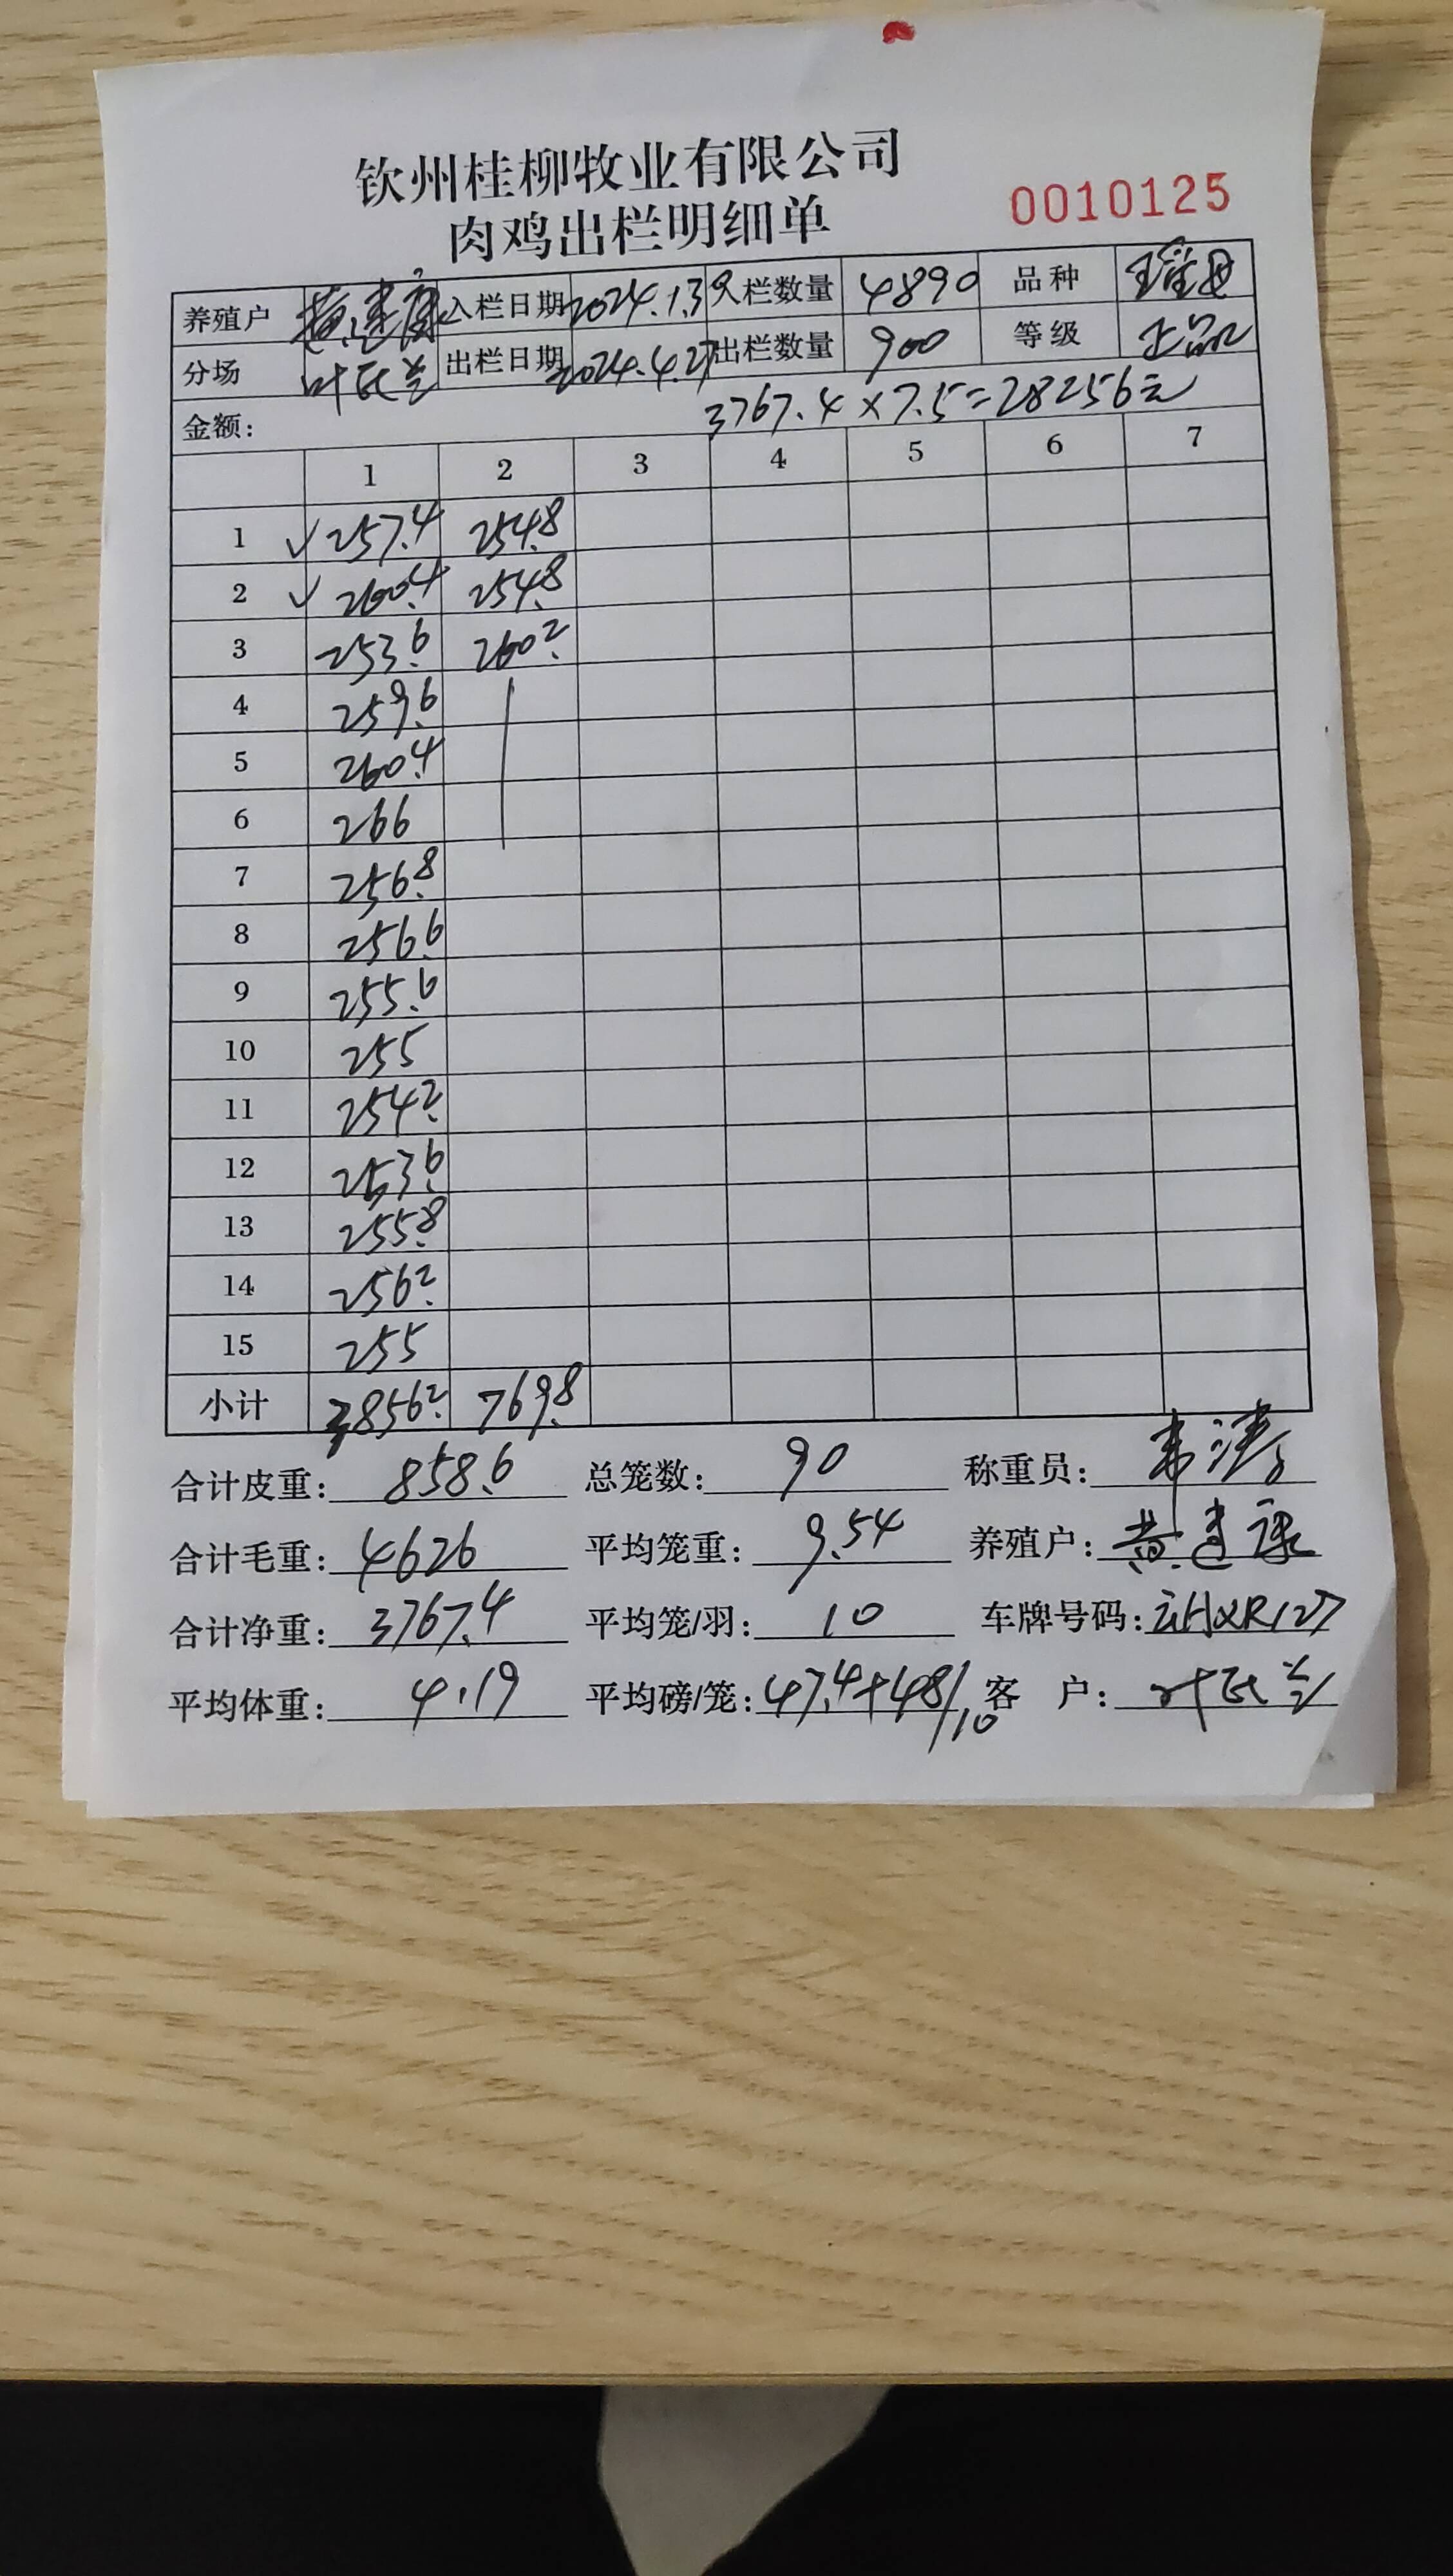 钦州桂柳牧业有限公司
肉鸡出栏明细单 0010125
养殖户 黄建康 入栏日期 2024.1.3 入栏数量 4890 品种
分场 叶氏兰 出栏日期 2024.4.27 出栏数量 900 等级 正品
金额: 3767.4×7.5=28256元
1 2 3 4 5 6 7
1 ✓ 257.4 254.8
2 ✓ 260.4 254.8
3 253.6 260.2
4 259.6
5 260.4
6 266
7 256.8
8 256.6
9 255.6
10 255
11 254.2
12 253.6
13 255.8
14 256.2
15 255
小计 3856.2 769.8
合计皮重: 858.6 总笼数: 90 称重员: 韦涛
合计毛重: 4626 平均笼重: 9.54 养殖户: 黄建康
合计净重: 3767.4 平均笼/羽: 10 车牌号码:
平均体重: 4.19 平均磅/笼: 47.4+48/10 客 户: 叶氏兰